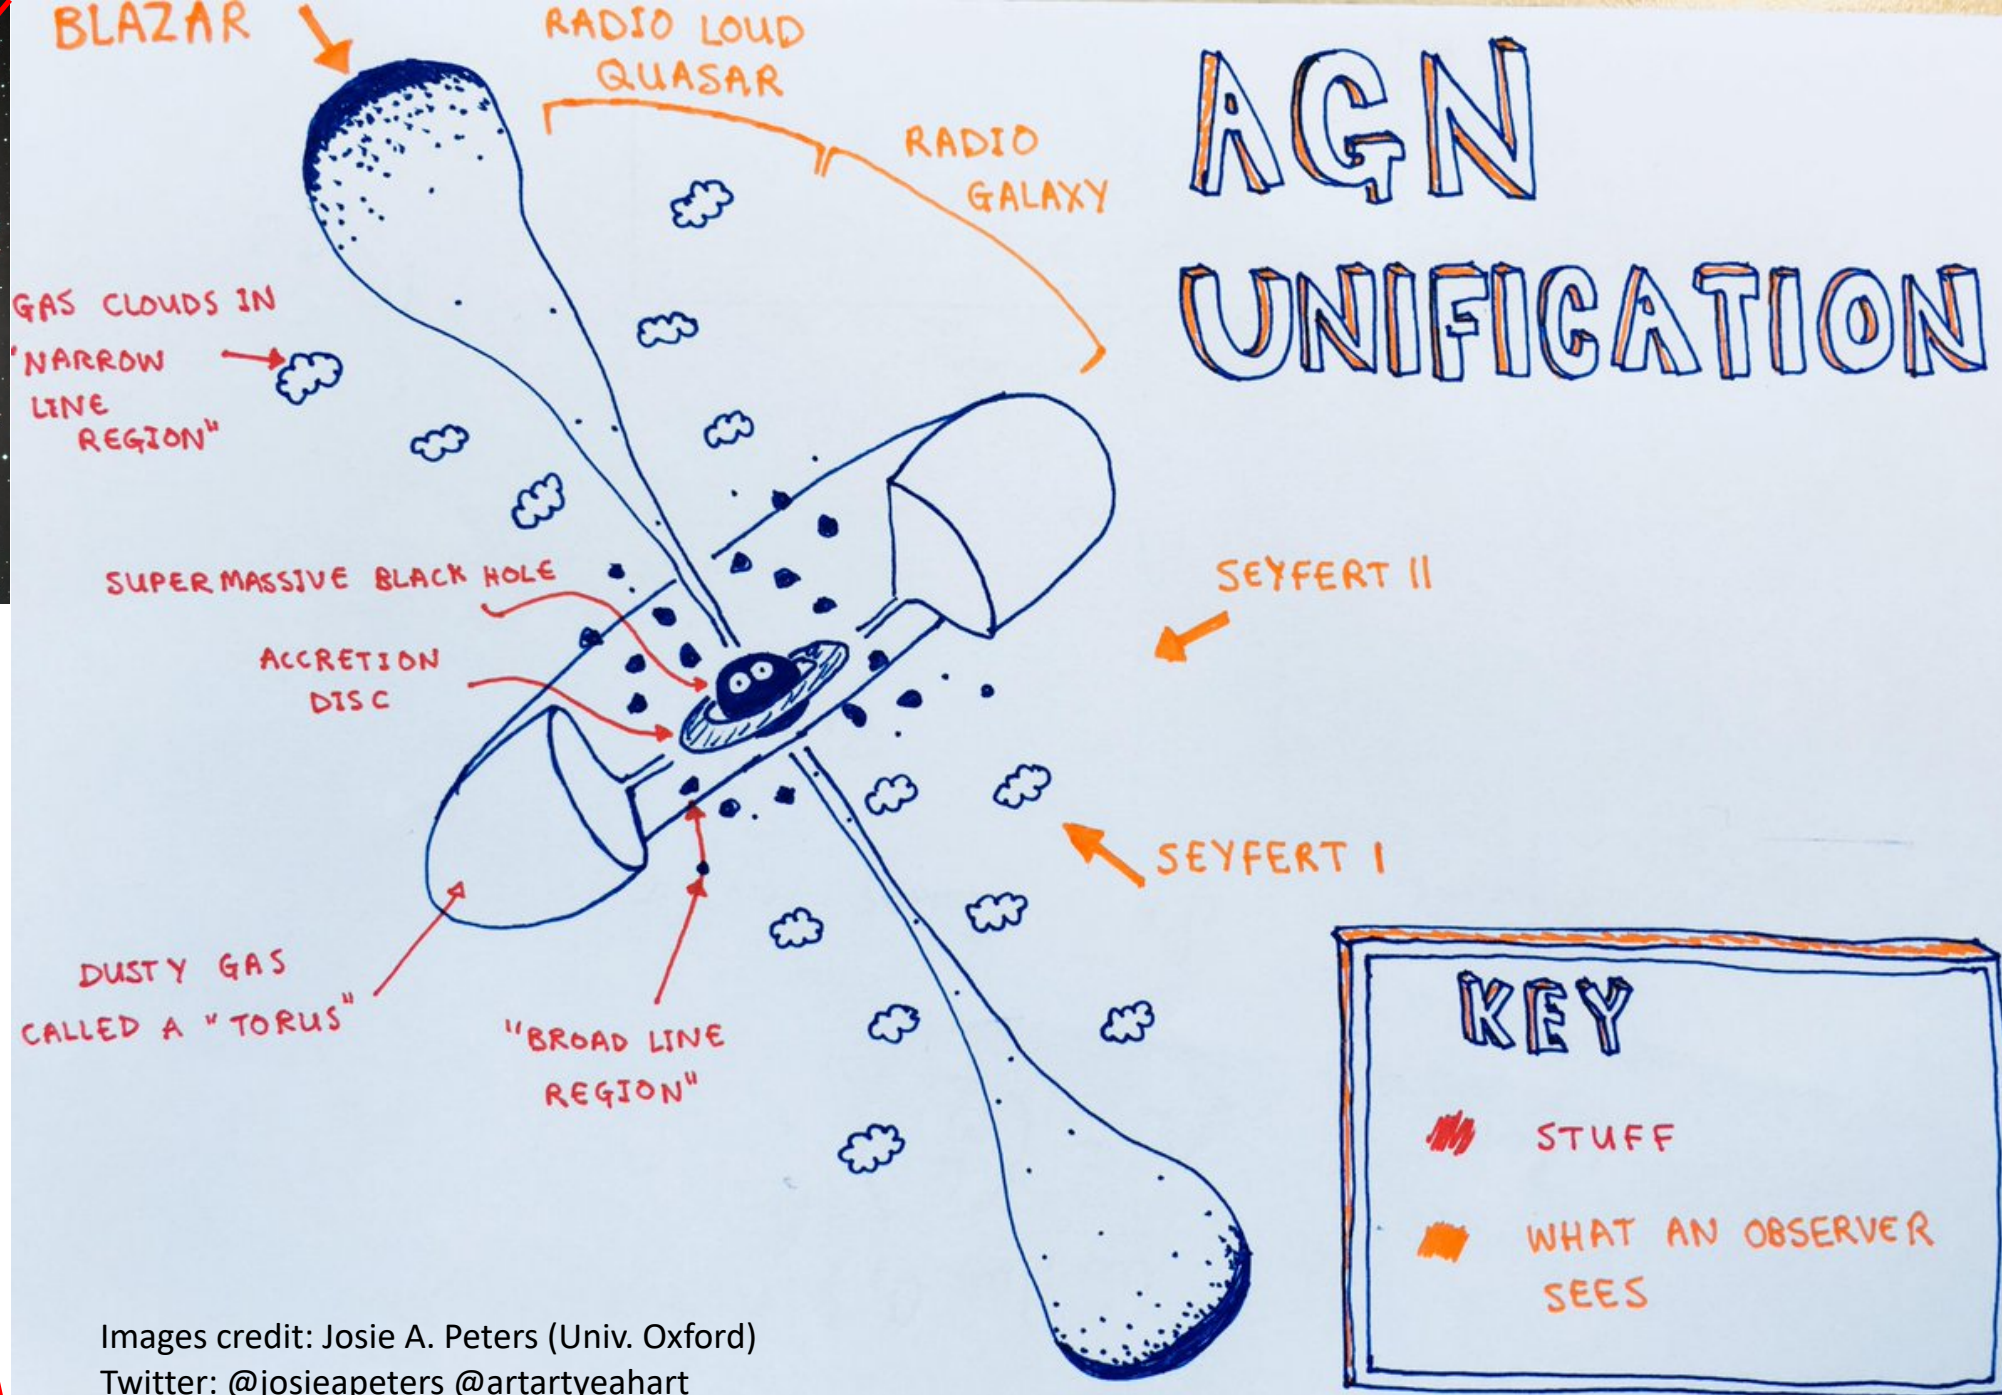 BLAZAR
RADIO LOUD
QUASAR
RADIO
GALAXY
AGN
UNIFICATION
GAS CLOUDS IN
"NARROW
LINE
REGION"
SUPERMASSIVE BLACK HOLE
ACCRETION
DISC
SEYFERT II
SEYFERT I
DUSTY GAS
CALLED A "TORUS"
"BROAD LINE
REGION"
KEY
STUFF
WHAT AN OBSERVER
SEES
Images credit: Josie A. Peters (Univ. Oxford)
Twitter: @josieapeters @artartyeahart